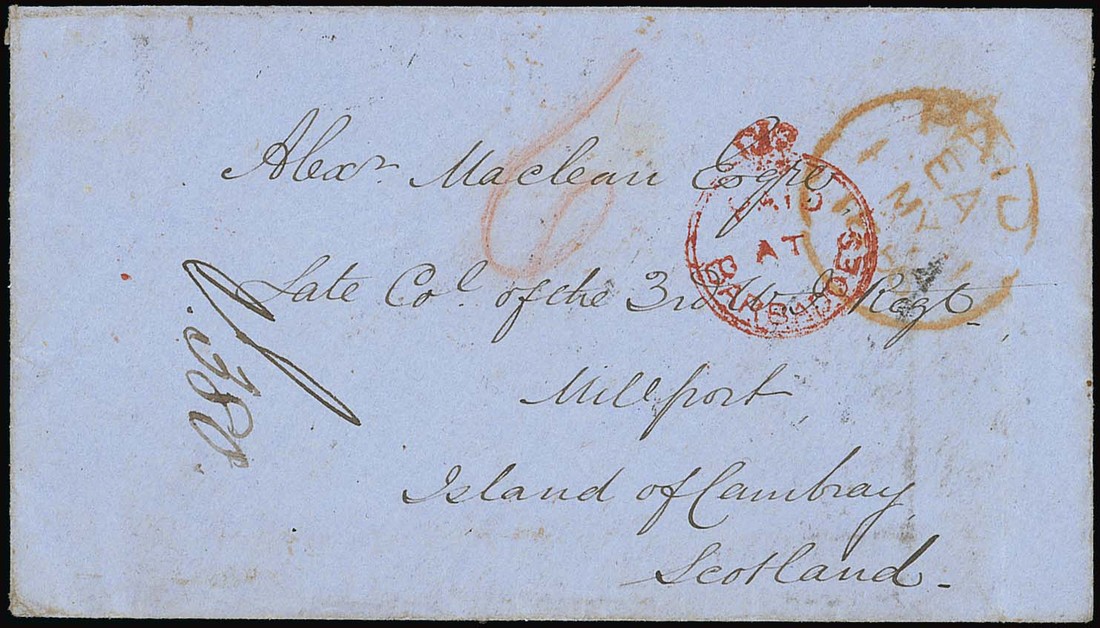 Alexr Maclean Esqre
Late Col. of the 3rd W. I. Regt.
Millport
Island of Cambray
Scotland.
6
PAID
AT
BARBADOES
PAID
EA
MY